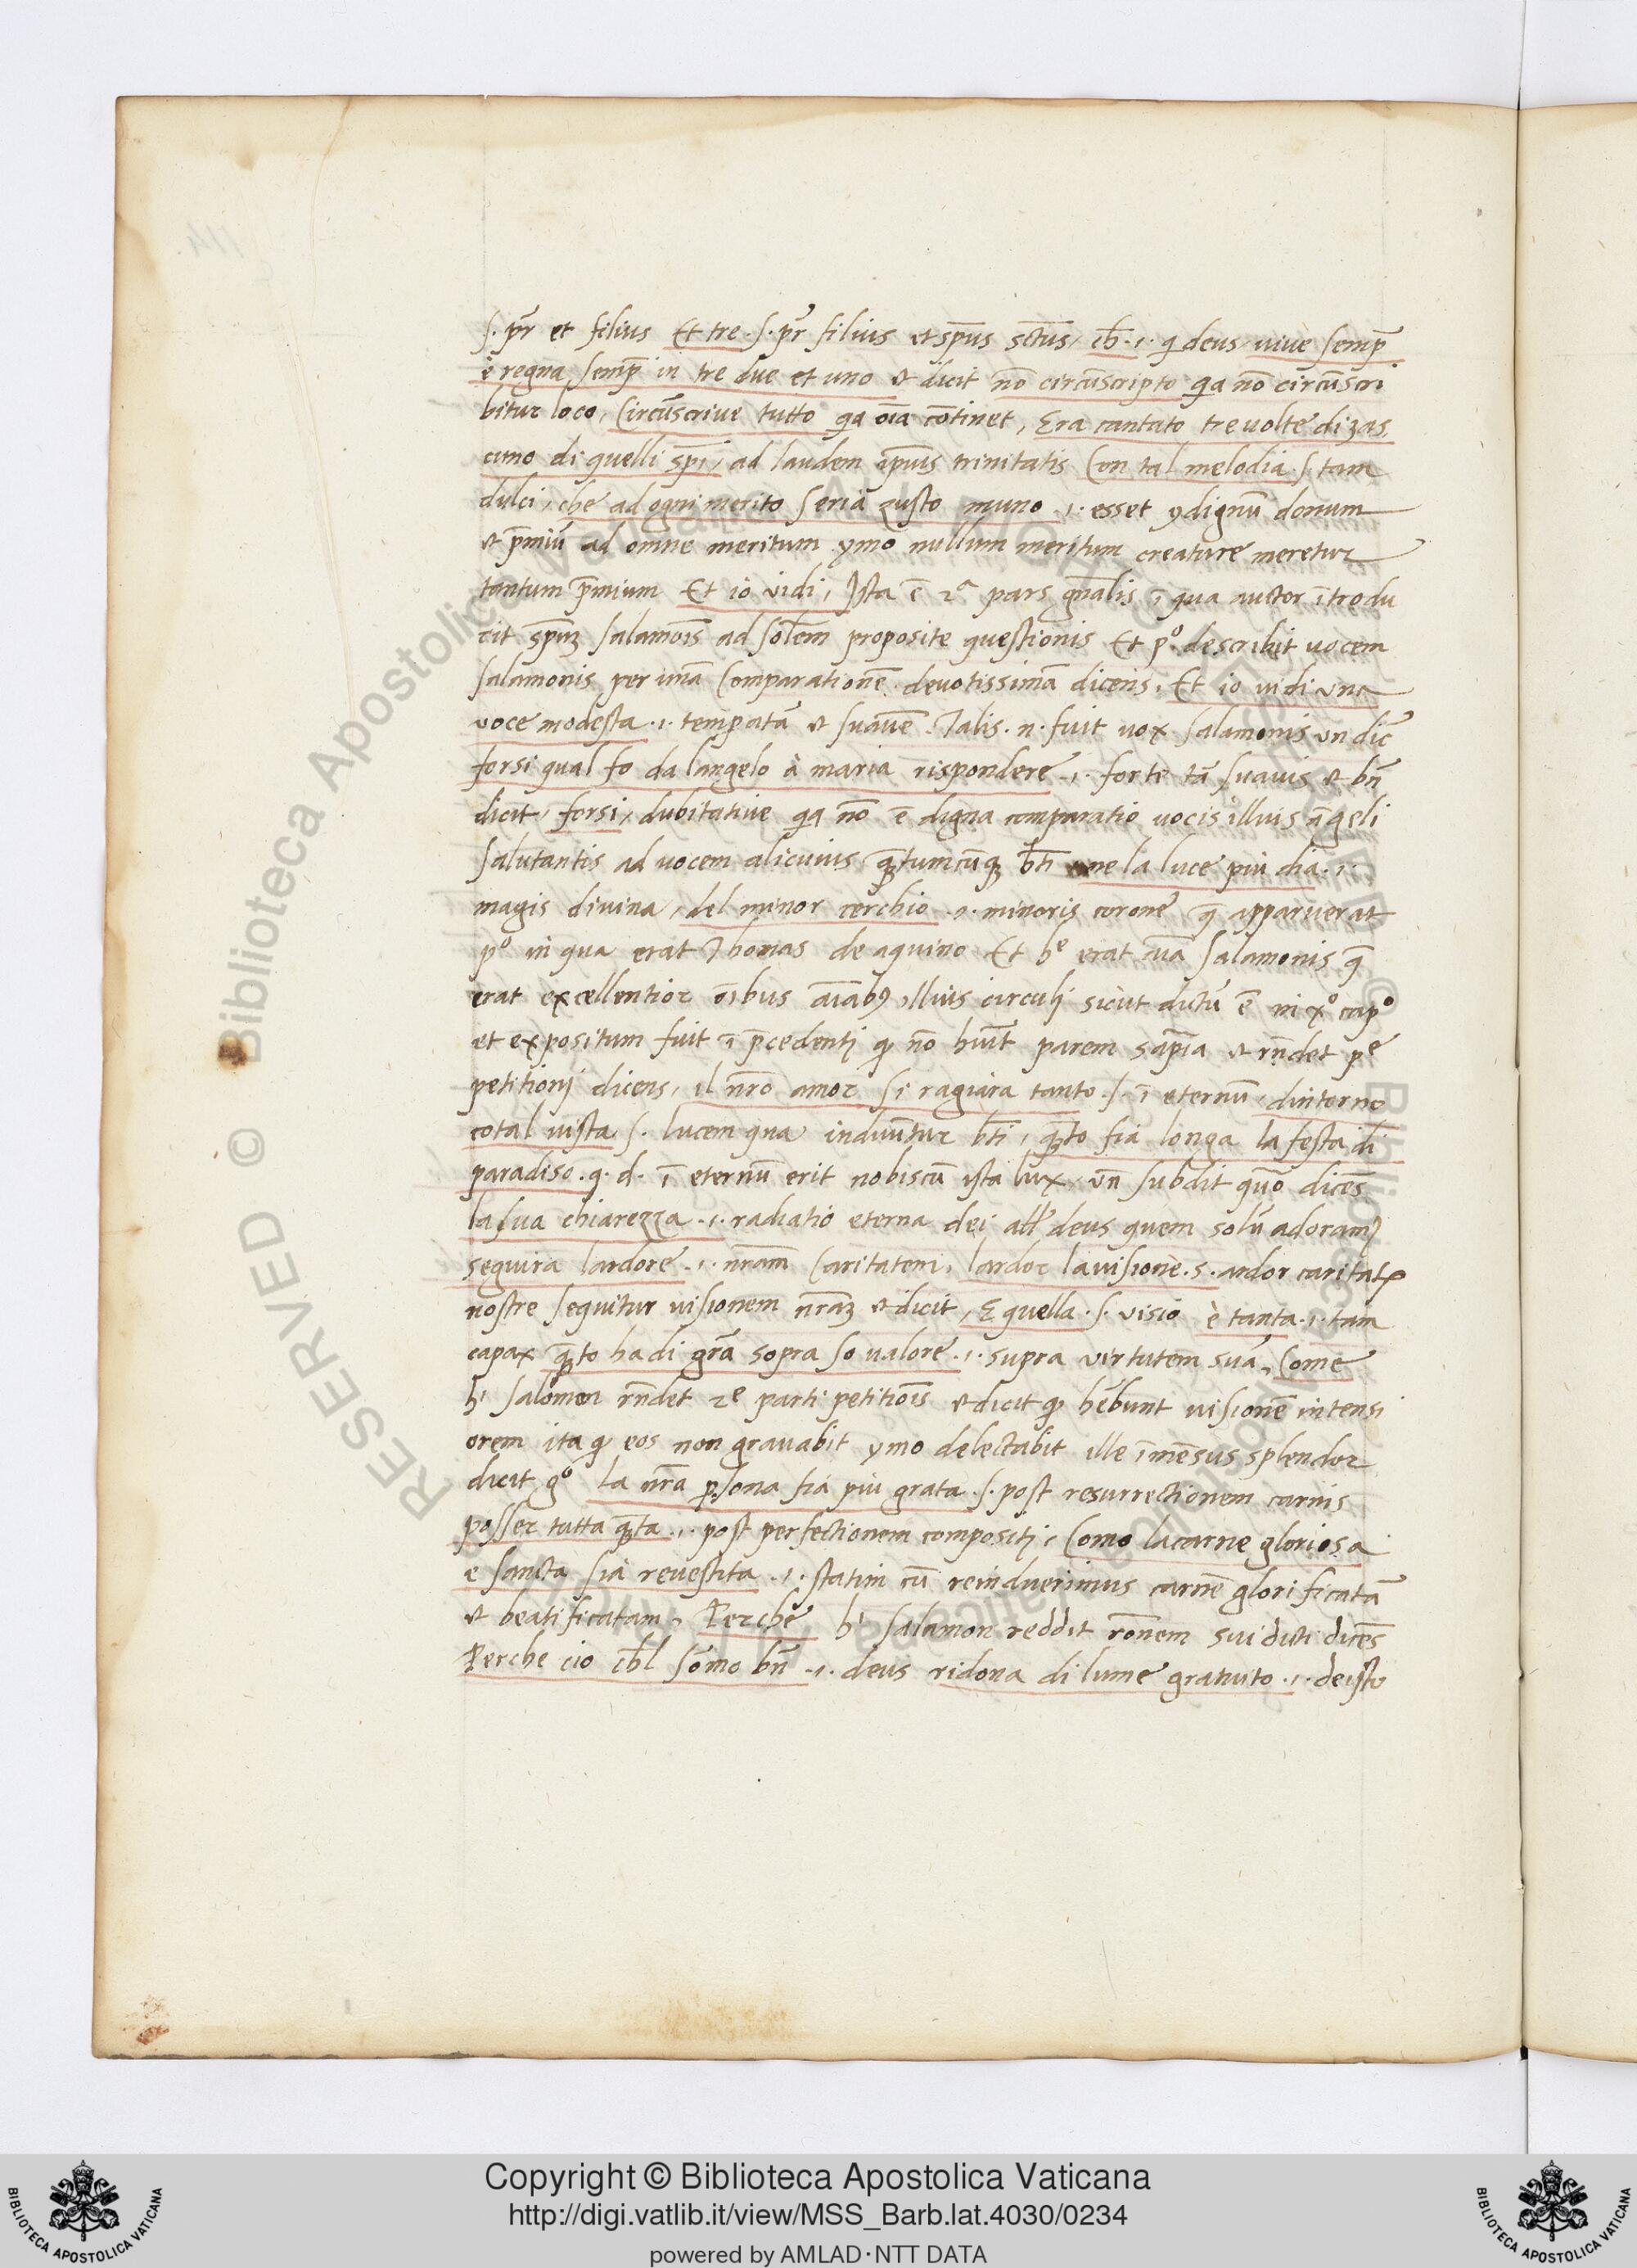 ſ. pr̄ et filius Et tre. ſ. pr̄ filius et sp̄us sc̄tus, ch̄. i. qͥ deus vive semp̄
e regna semp̄ in tre due et uno et dicit nō circūscripto qa nō circūscri
bitur loco, Circūscrive tutto qa oīa cōtinet, Era cantato tre volte di zas
cuno di quelli sp̄i, ad laudem ip̄ius trinitatis Con tal melodia. ſ. tam
dulci, che ad ogni merito seria zusto muno .i. esset ꝯdignū donum
et p̄miū ad omne meritum ymo nullum meritum creature meretur
tantum p̄mium Et io vidi, Ista ē 2ᵃ pars gn̄alis ī qua auctor ītrodu
cit sp̄uꝫ salamōis ad sol̄em proposite questionis Et pº describit vocem
salamonis per unā Comparationē devotissimā dicens, Et io vidi una
voce modesta .i. temperatā et suavē Talis .n. fuit vox salamonis vn̄ dic̄
forsi qual fo da langelo à maria rispondere .i. forte tā suavis et bn̄
dicit, forsi, dubitative qa nō ē digna comparatio vocis illius āgeli
salutantis ad vocem alicuius qᵃtumcūqꝫ bt̄i ne la luce più dia .i.
magis divina, del minor cerchio .i. minoris corone q̄ apparuerat
pº in qua erat Thomas de aquino Et hᵉ erat aīa salamonis q̄
erat excellentior oībus aīabꝰ illius circuli sicut dictū ē in xº capº
et expositum fuit ī p̄cedenti qꝫ nō huit̄ parem sap̄ia et rn̄det pᵉ
petitioni dicens, il nr̄o amor si ragiara tanto. ſ. ī eternū, dintorno
cotal vista. ſ. lucem qua induūtur bt̄i, qᵃto fia longa la festa di
paradiso. q. d. ī eternū erit nobiscū ista lux, vn̄ subdit quō dicēs
la sua chiarezza .i. radiatio eterna dei deus quem solū adoramꝰ
seguira lardore .i. nr̄am Caritatem, lardor la visione. s. ardor caritatꝭ
nostre sequitur visionem nr̄aꝫ et dicit, E quella. ſ. visio è tanta .i. tam
capax qᵃto ha di grā sopra so valore .i. supra virtutem suā, Come
hⁱ salomon rn̄det 2ᵉ parti petitiōis et dicit qꝫ hēbunt visionē intensi
orem ita qꝫ eos non gravabit ymo delectabit ille īmēsus splendor
dicit gº la nr̄a ꝑsona fia più grata. ſ. post resurrectionem carnis
posser tutta qᵃta .i. post perfectionem compositi, Como la carne gloriosa
e sancta fia revestita .i. statim cū reinduerimus carnē glorificatā
et beatificatam, Perche hⁱ salamon reddit rōnem sui dicti dicēs
Perche cio ch̄l sōmo bn̄ .i. deus ridona di lume gratuito .i. de isto
RESERVED © Biblioteca Apostolica Vaticana
Copyright © Biblioteca Apostolica Vaticana
http://digi.vatlib.it/view/MSS_Barb.lat.4030/0234
powered by AMLAD·NTT DATA
BIBLIOTECA APOSTOLICA VATICANA
BIBLIOTECA APOSTOLICA VATICANA